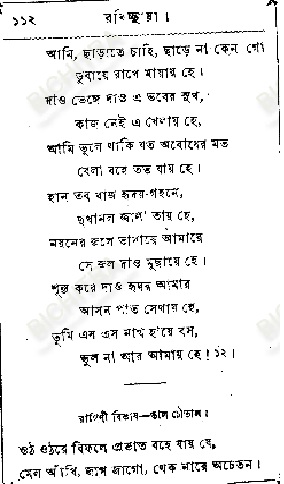 ১১২
আমি, ছাড়াতে চাহি, ছাড়ে না কেন গো
ডুবায়ে রাখে মায়ায় হে।
দাও ভেঙ্গে দাও এ ভবের সুখ,
কাজ নেই এ খেলায় হে,
আমি ভুলে থাকি যত অবোধের মত
বেলা বয়ে তত যায় হে।
হৃদয়-গহনে,
তায় হে,
নয়নের জলে আমারে
সে জল দাও মুছায়ে হে।
শূন্য করে দাও হৃদয় আমার
আসন পাত সেথায় হে,
তুমি এস এস নাথ হয়ে বস,
ভুল না আর আমায় হে! ১২।
রাগিণী বিভাস—তাল চৌতাল।
ওঠ ওঠরে বিফলে প্রভাত বহে যায় যে,
মেল আঁখি, জাগো জাগো, থেক নারে অচেতন।